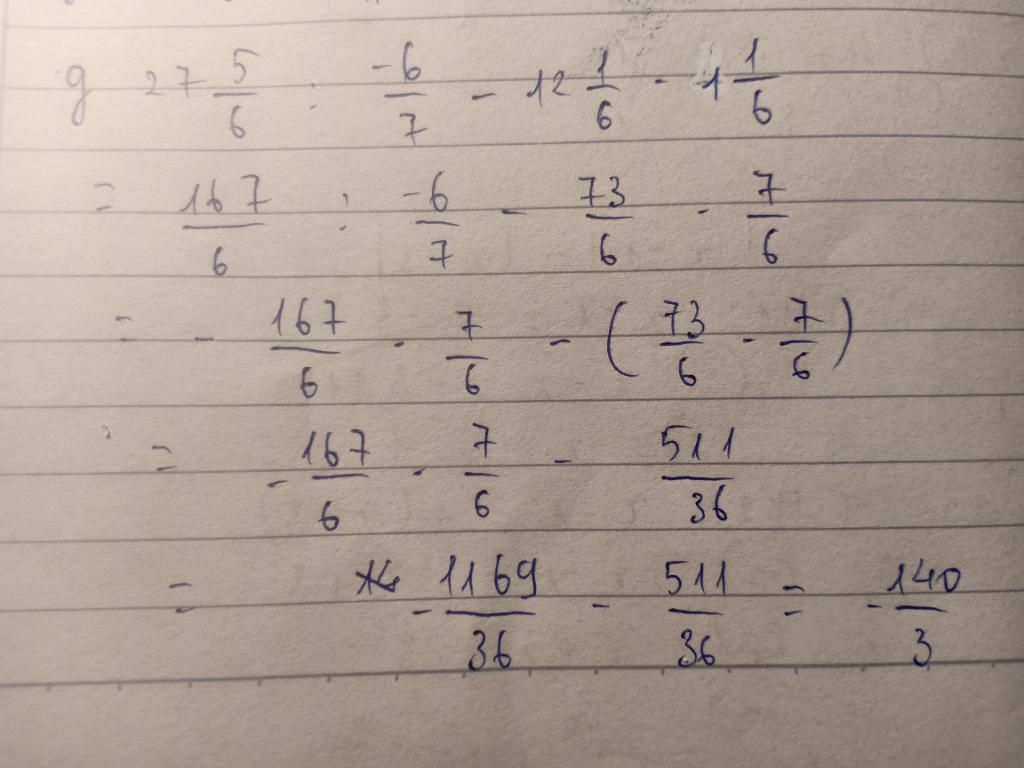 g 27 5/6 : -6/7 - 12 1/6 · 1 1/6
= 167/6 : -6/7 - 73/6 · 7/6
= - 167/6 · 7/6 - (73/6 · 7/6)
= - 167/6 · 7/6 - 511/36
= - 1169/36 - 511/36 = - 140/3